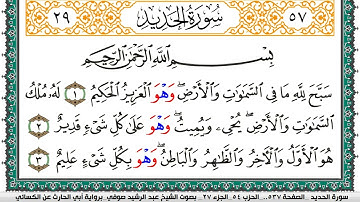 ٥٧ سُورَةُ الْحَدِيدِ ٢٩
بِسْمِ اللَّهِ الرَّحْمَٰنِ الرَّحِيمِ
سَبَّحَ لِلَّهِ مَا فِي السَّمَٰوَٰتِ وَالْأَرْضِ ۖ وَهْوَ الْعَزِيزُ الْحَكِيمُ ١ لَهُۥ مُلْكُ
السَّمَٰوَٰتِ وَالْأَرْضِ ۖ يُحْيِۦ وَيُمِيتُ ۖ وَهْوَ عَلَىٰ كُلِّ شَيْءٍ قَدِيرٌ ٢
هُوَ الْأَوَّلُ وَالْآخِرُ وَالظَّٰهِرُ وَالْبَاطِنُ ۖ وَهْوَ بِكُلِّ شَيْءٍ عَلِيمٌ ٣
سورة الحديد _ الصفحة ٥٣٧_ الحزب ٥٤_ الجزء ٢٧_ بصوت الشيخ عبد الرشيد صوفي_ برواية أبي الحارث عن الكسائي